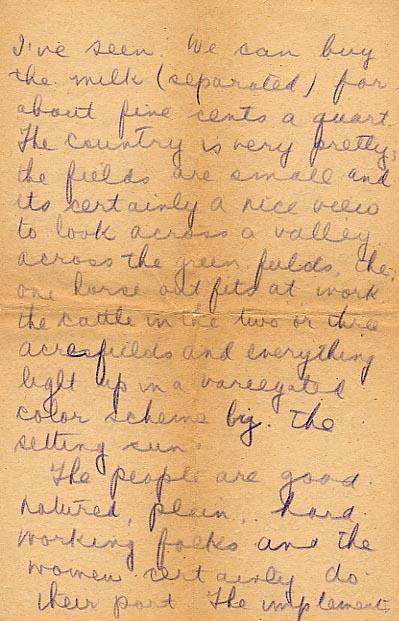 I've seen. We can buy
the milk (separated) for
about five cents a quart.
The country is very pretty,
the fields are small and
its certainly a nice view
to look across a valley
across the green fields, the
one horse outfits at work
the cattle in the two or three
acres fields and everything
light up in a vareegated
color scheme by. the
setting sun.
The people are good
natured, plain, hard
working folks and the
women certainly do
their part The implement